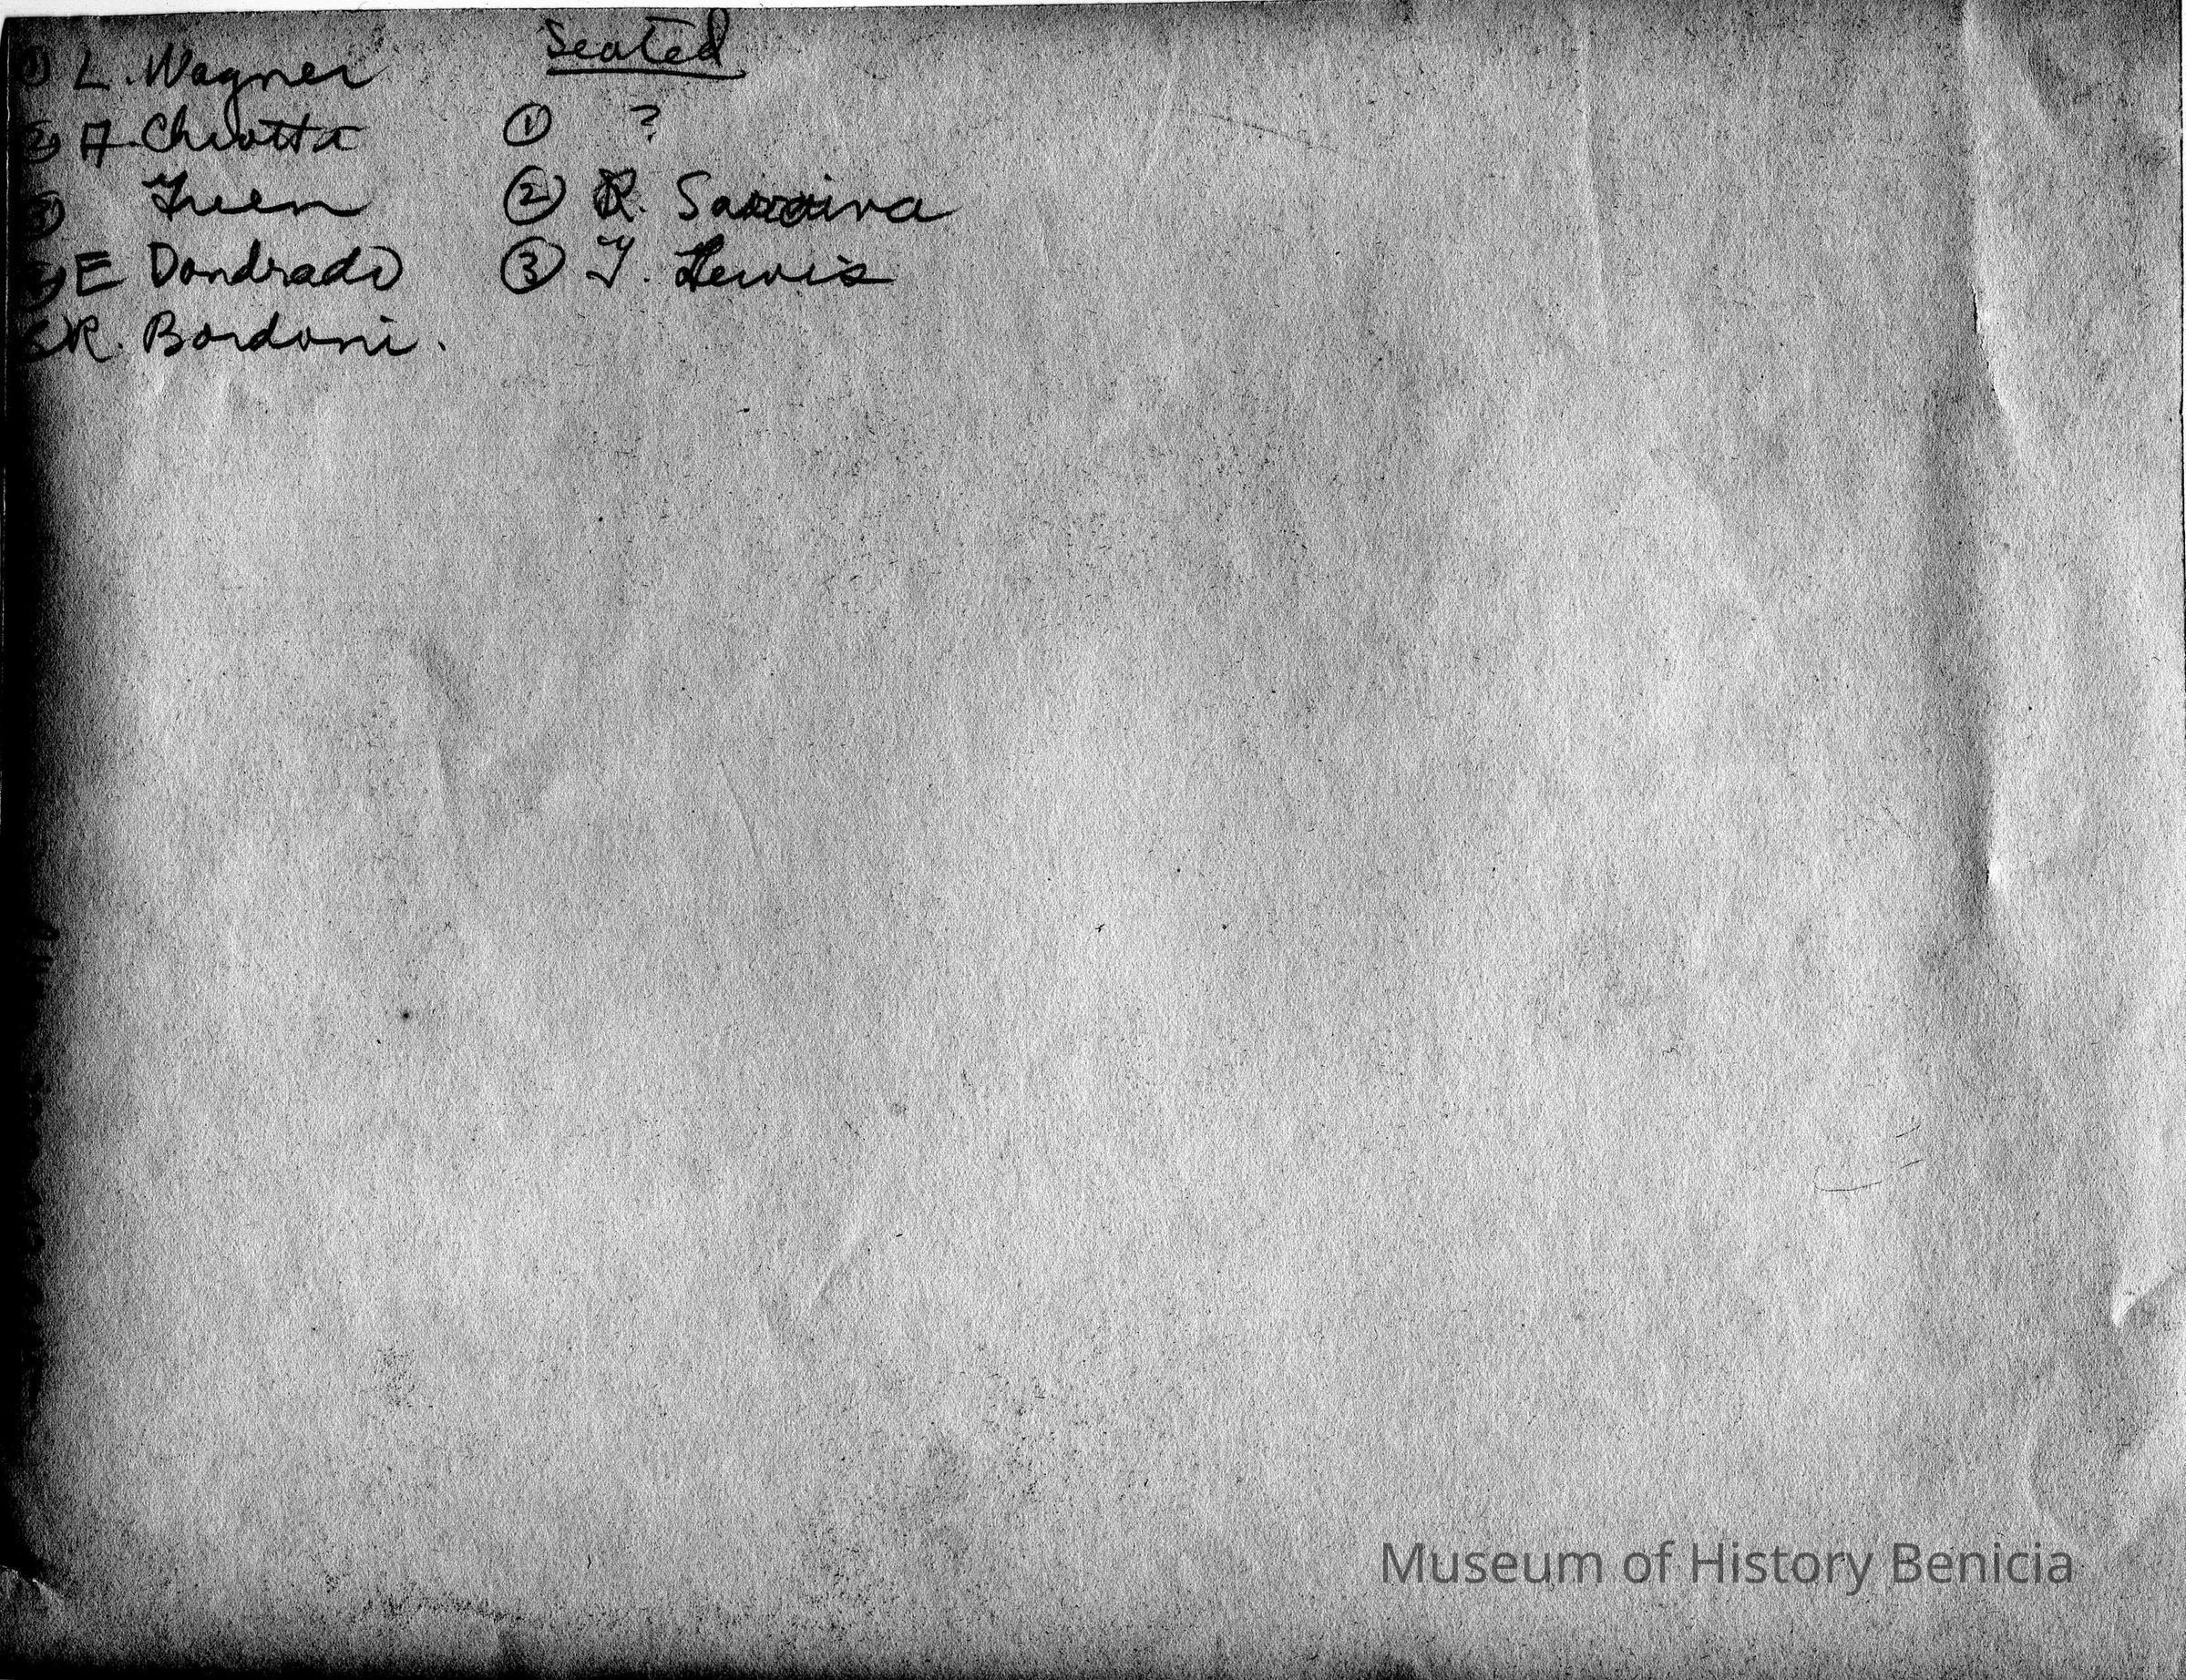 ① L. Wagner
② A. Chiotta
③ Green
④ E Dondrado
⑤ R. Bordoni.
Seated
① ?
② R.
③ T. Lewis
Museum of History Benicia